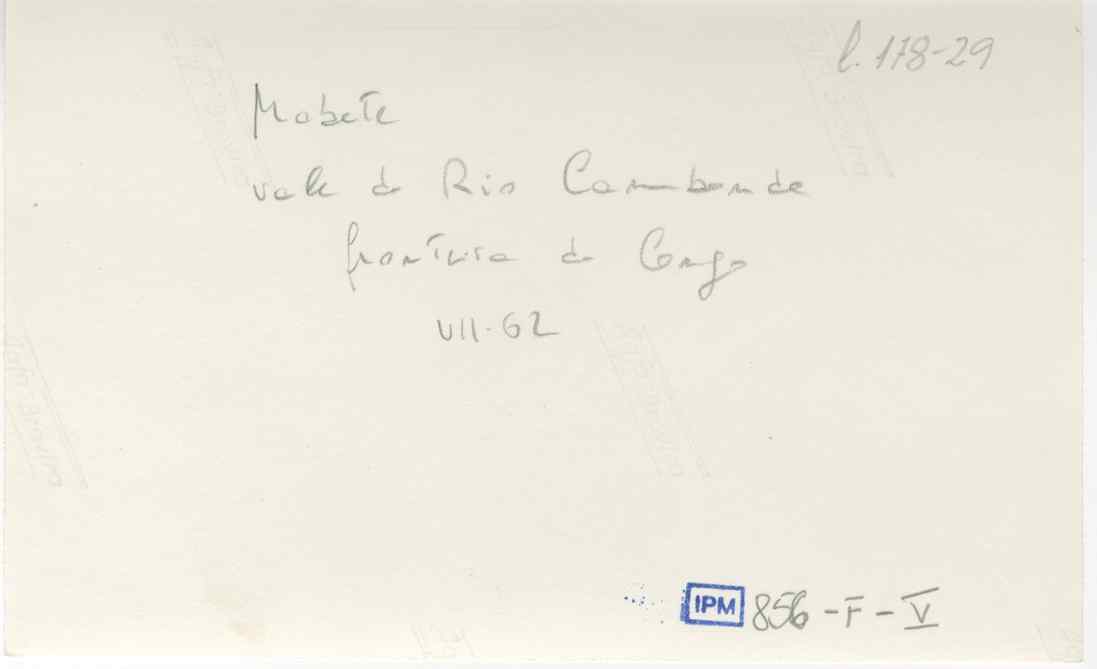 l. 178-29
Mabete
vale do Rio Cambonde
fronteira do Congo
VII-62
IPM 856-F-V